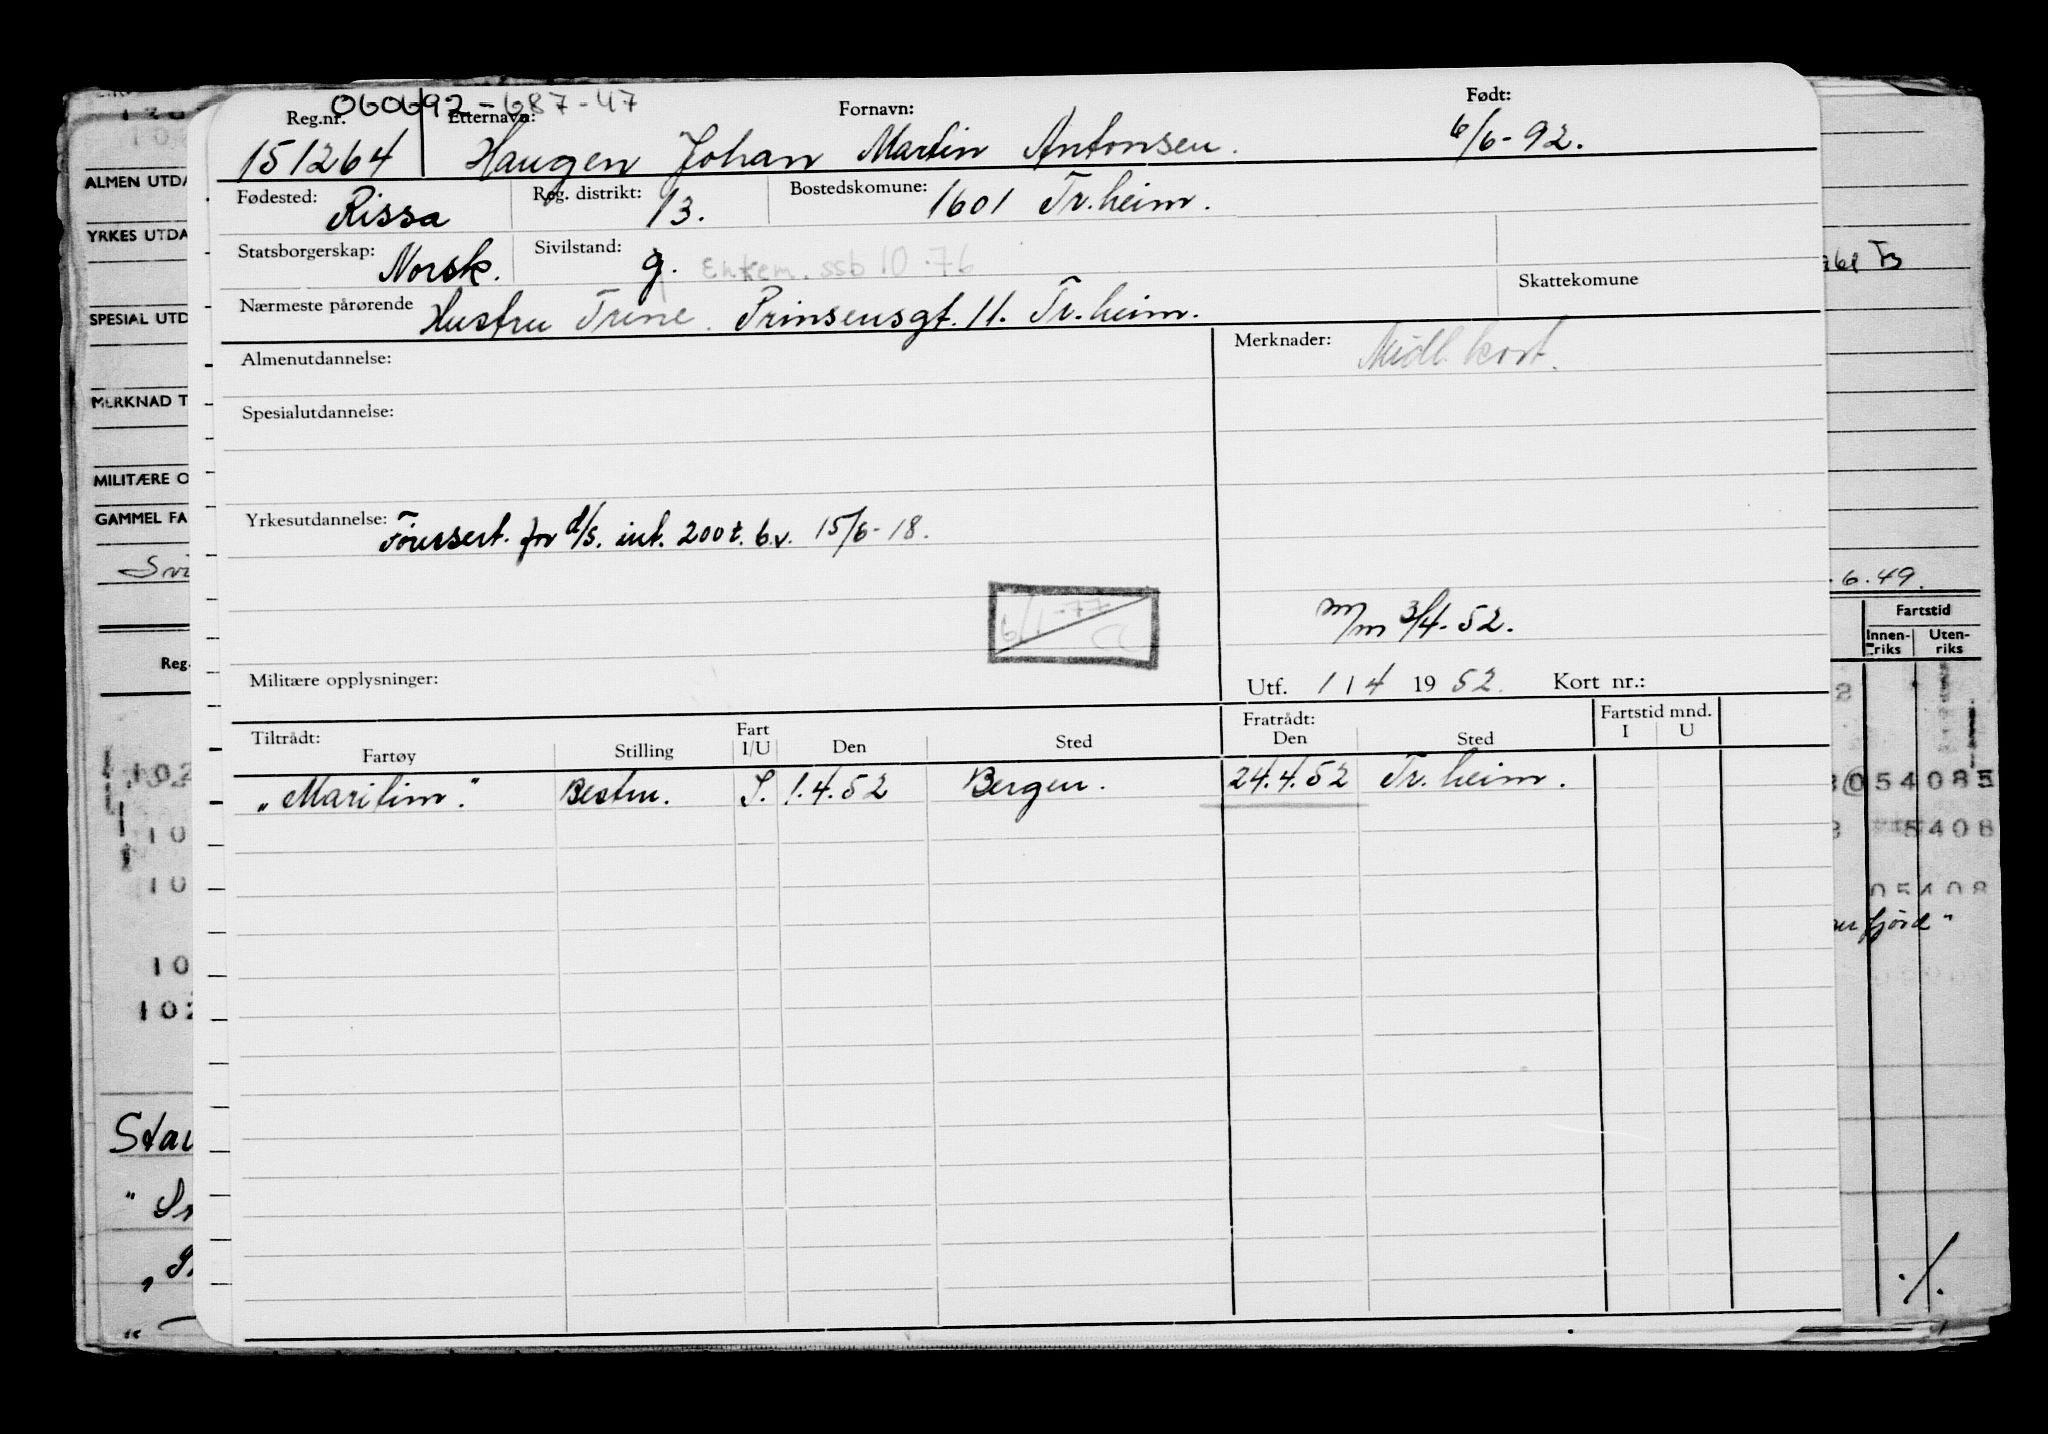 060692-687-47
Reg.nr. Etternavn: Fornavn: Født:
151264 Haugen Johan Martin Antonsen. 6/6-92.
Fødested: Rissa Reg. distrikt: 13. Bostedskomune: 1601 Tr.heim.
Statsborgerskap: Norsk. Sivilstand: g. Enkem. ssb 10.76
Skattekomune
Nærmeste pårørende Hustru Trine. Prinsensgt. 11. Tr.heim.
Almenutdannelse: Merknader: Midl. kort.
Spesialutdannelse:
Yrkesutdannelse: for d/s. int. 200 t. b.v. 15/6-18.
6/1-77
m/m 3/4-52.
Militære opplysninger: Utf. 1 / 4 19 52. Kort nr.:
Tiltrådt: Fratrådt: Fartstid mnd.
Fartøy Stilling Fart I/U Den Sted Den Sted I U
"Maritim". Bestm. 1.4.52 Bergen. 24.4.52 Tr.heim.
ALMEN UTDA
YRKES UTDA
SPESIAL UTD
MERKNAD T
MILITÆRE O
GAMMEL FA
Reg.
102
10
10
10
102
.6.49.
Fartstid
Innen-riks Uten-riks
054085
5408
05408
fjord"
./.